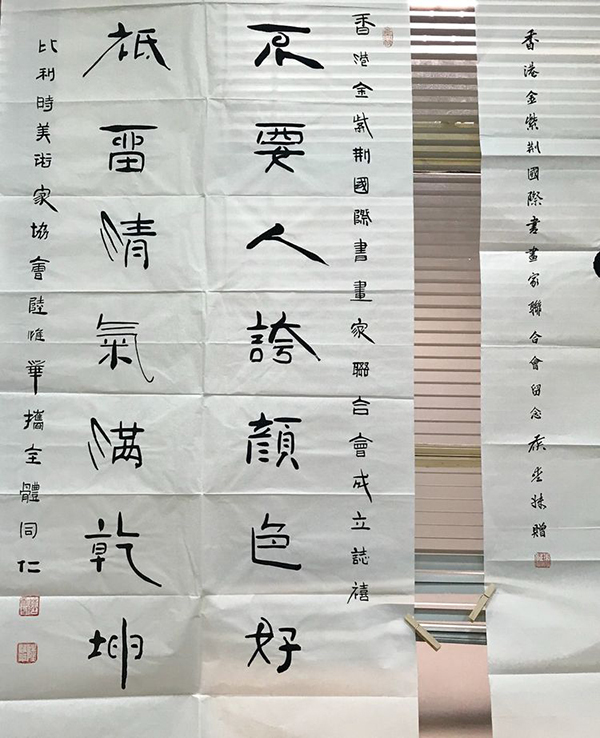 香港金紫荆國際書畫家聯合會留念 贈
香港金紫荆國際書畫家聯合會成立誌禧
不要人誇顏色好
祇留清氣滿乾坤
比利時美術家協會陸惟華攜全體同仁